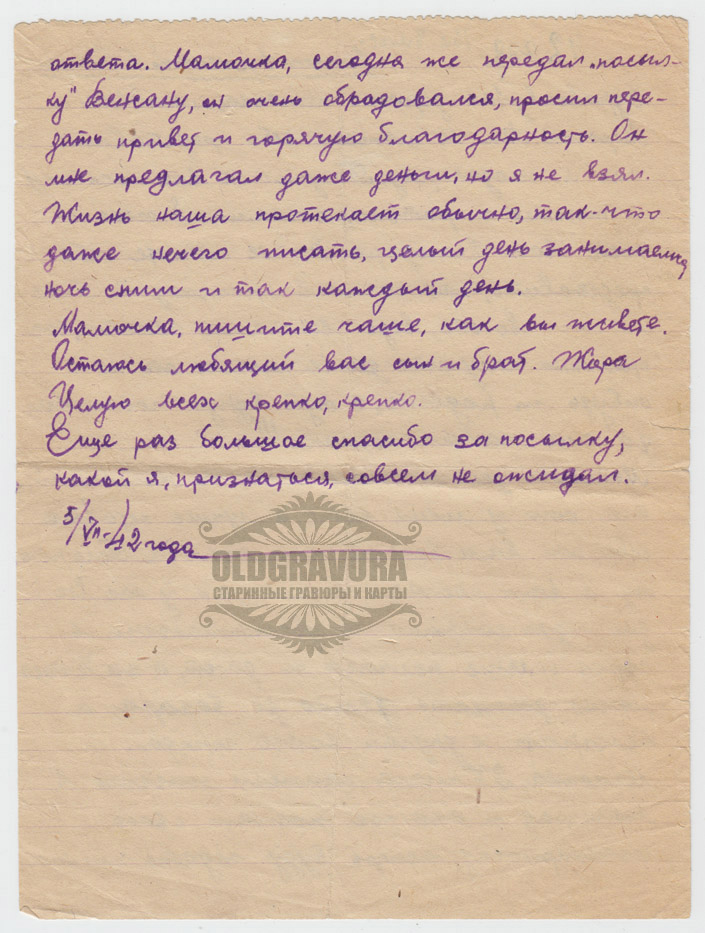 ответа. Мамочка, сегодня же передал „посыл-
ку" Бежану, он очень обрадовался, просил пере-
дать привет и горячую благодарность. Он
мне предлагал даже деньги, но я не взял.
Жизнь наша протекает обычно, так-что
даже нечего писать, целый день занимаемся
ночь спим и так каждый день.
Мамочка, пишите чаще, как вы живете.
Остаюсь любящий вас сын и брат. Жора
Целую всех крепко, крепко.
Еще раз большое спасибо за посылку,
какой я, признаться, совсем не ожидал.
5/VII-42 года
OLDGRAVURA
СТАРИННЫЕ ГРАВЮРЫ И КАРТЫ